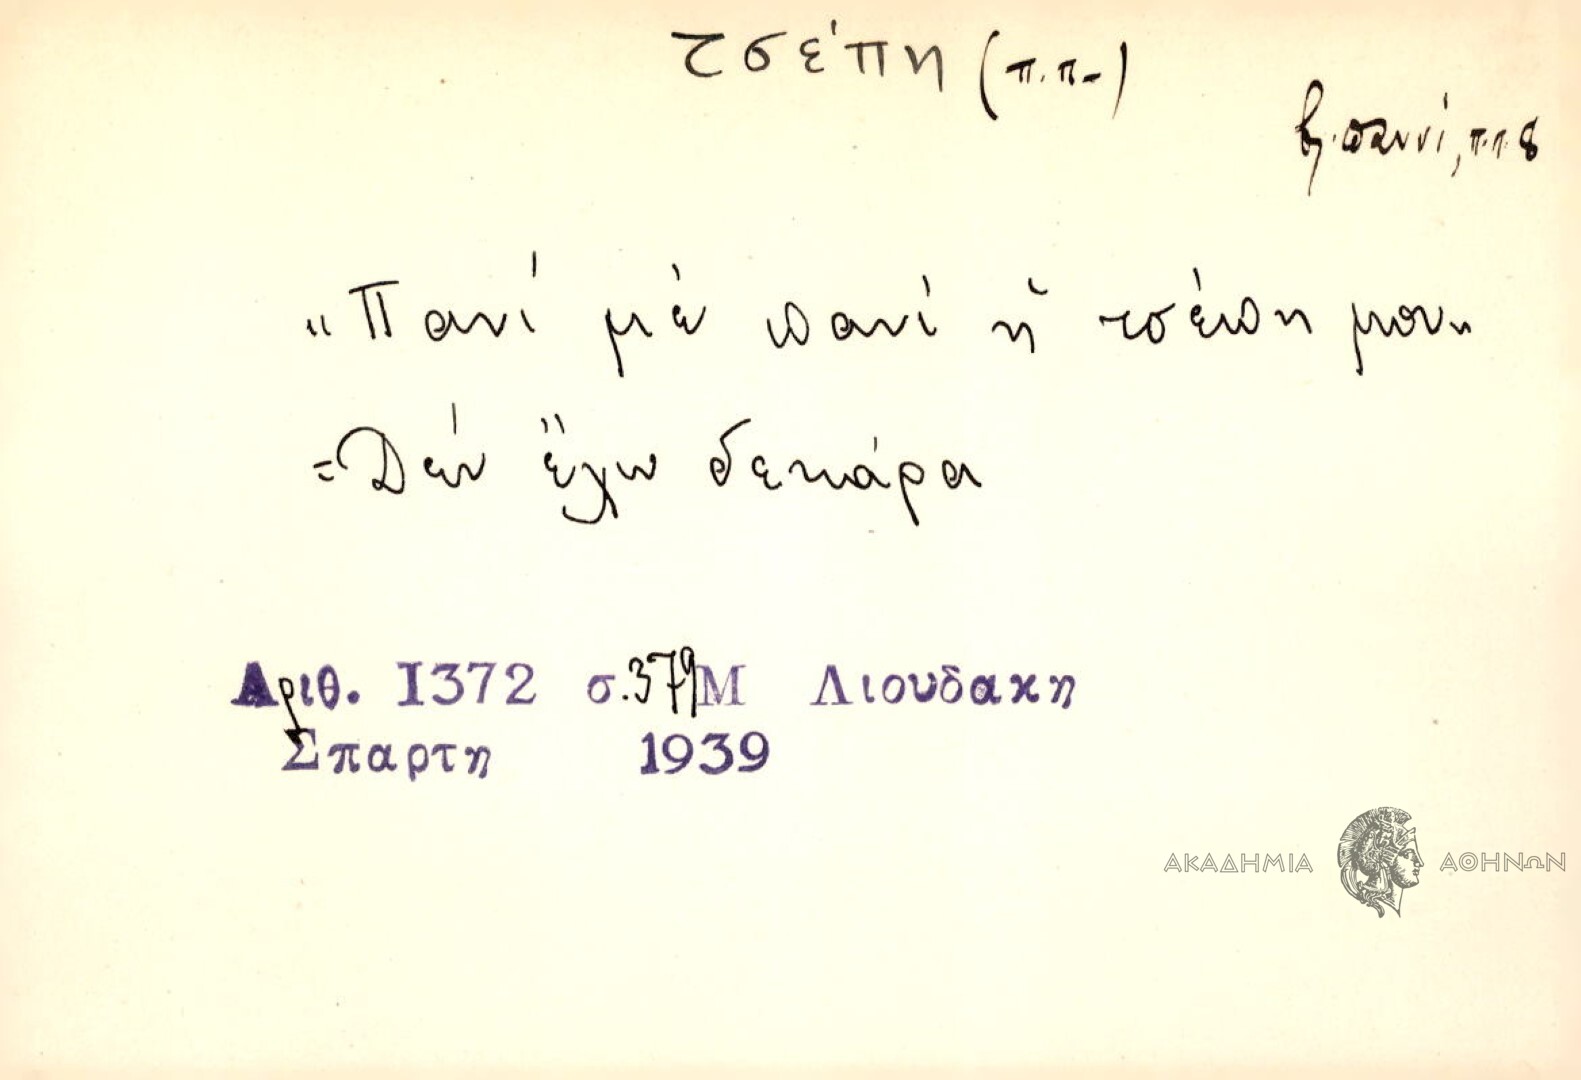 τσέπη (π.π-)
βλ. παννί, π.π. 8
"Πανὶ μὲ πανὶ ἡ τσέπη μου"
=Δὲν ἔχω δεκάρα
Αριθ. 1372 σ. 379 Μ Λιουδακη
Σπαρτη 1939
ΑΚΑΔΗΜΙΑ ΑΘΗΝΩΝ